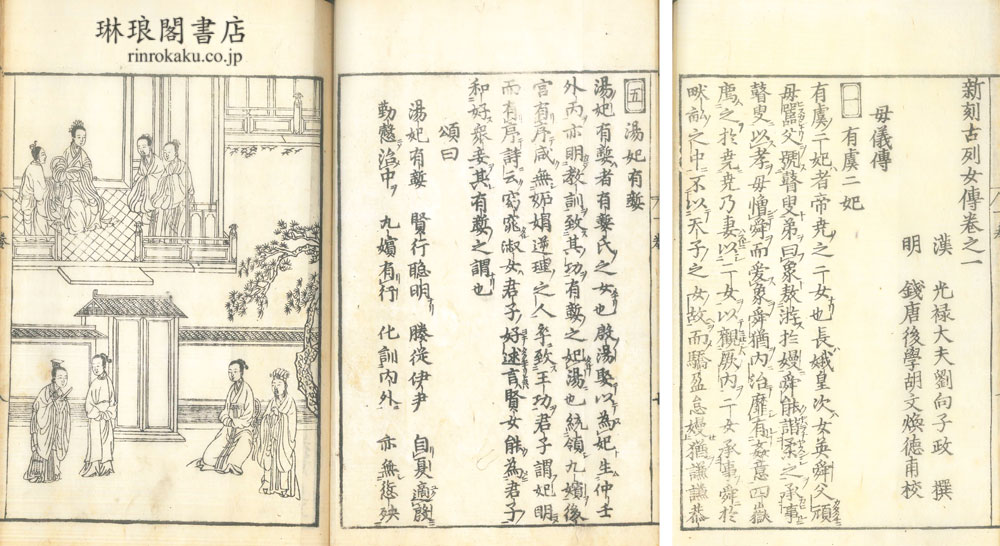 琳琅閣書店
rinrokaku.co.jp
新刻古列女傳卷之一
漢 光禄大夫劉向子政 撰
明 錢唐後學胡文煥德甫校
母儀傳
一 有虞二妃
有虞二妃者帝尭之二女也長娥皇次女英舜父頑
母嚚父號瞽叟弟曰象敖游於嫚舜能諧柔之承事
瞽叟以孝母憎舜而愛象舜猶内治靡有姦意四嶽
薦之於尭尭乃妻以二女以觀厥内二女承事舜於
畎畝之中不以天子之女故而驕盈怠嫚猶謙謙恭
五 湯妃有㜪
湯妃有㜪者有㜪氏之女也殷湯娶以為妃生仲壬
外丙亦明教訓致其功有㜪之妃湯也統領九嬪後
宮有序咸無妬媢逆理之人卒致王功君子謂妃明
而有序詩云窈窕淑女君子好逑言賢女能為君子
和好衆妾其有㜪之謂也
頌曰
湯妃有㜪 賢行聰明 媵従伊尹 自夏適殷
勤慤治中 九嬪有行 化訓内外 亦無愆殃